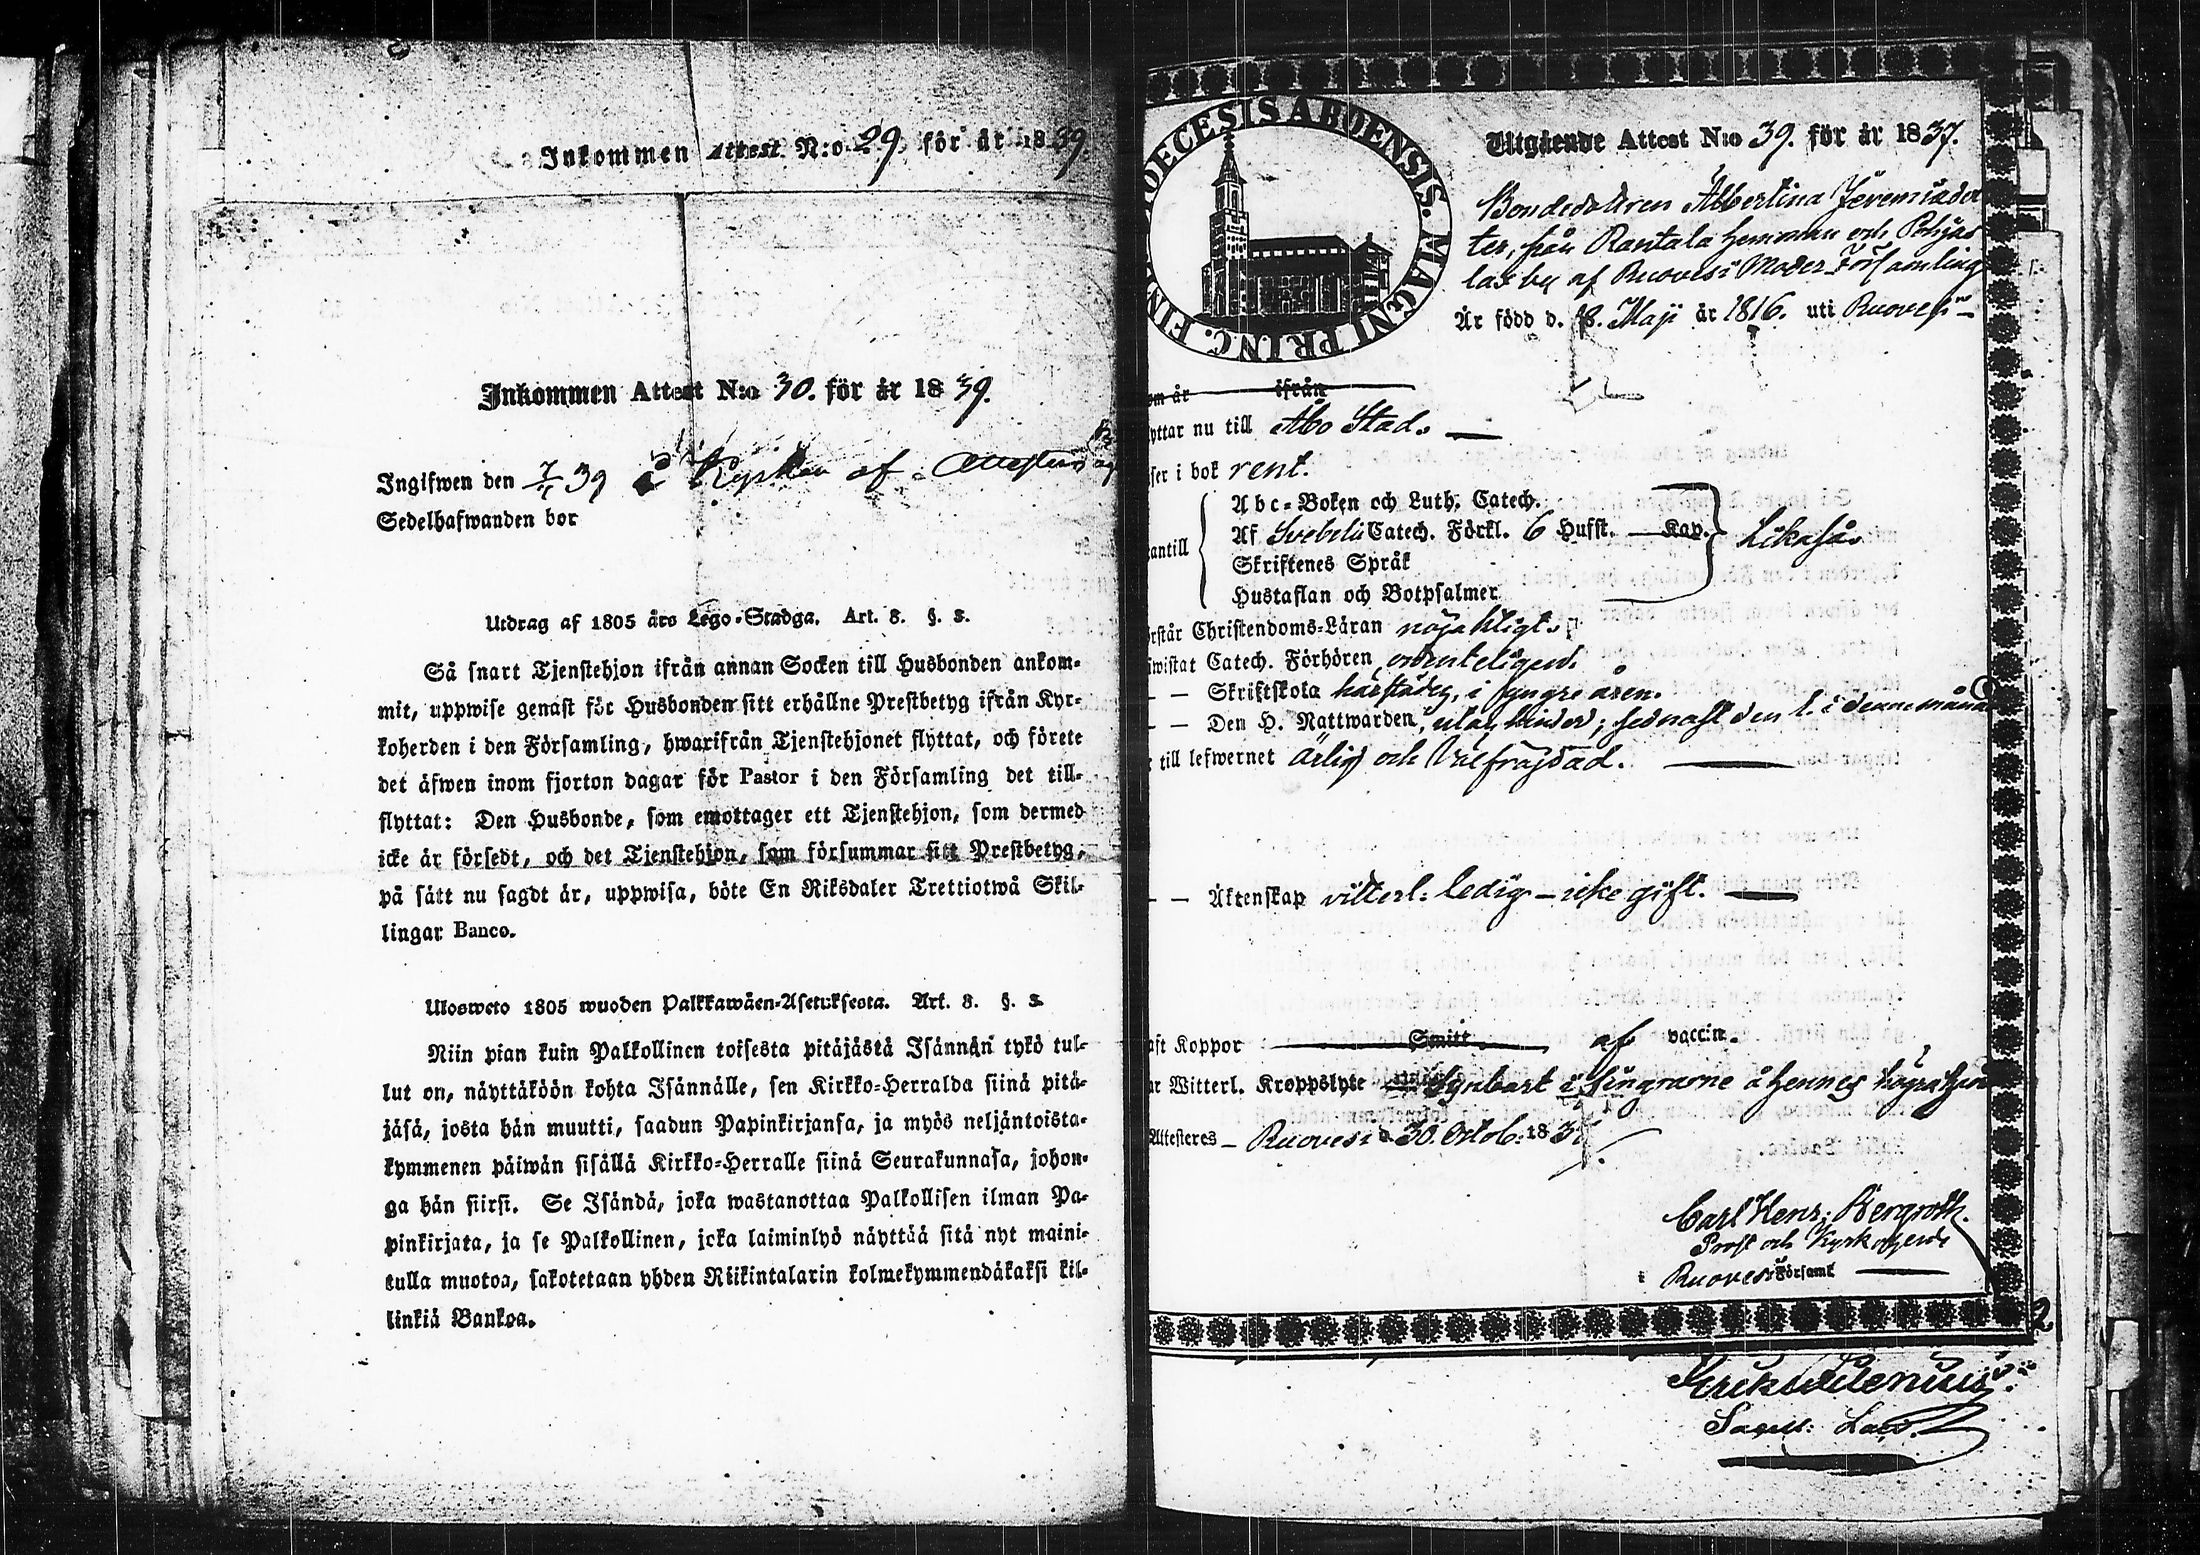 Inkommen Attest N:o 29 för år 1839
Inkommen Attest N:o 30. för år 1839.
Ingifwen den 7/11 39 å Kyrkan af
Sedelhafwanden bor
Utdrag af 1805 års Lego-Stadga. Art. 8. §. 3.
Så snart Tjenstehjon ifrån annan Socken till Husbonden ankom-
mit, uppwise genast för Husbonden sitt erhållne Prestbetyg ifrån Kyr-
koherden i den Församling, hwarifrån Tjenstehjonet flyttat, och förete
det äfwen inom fjorton dagar för Pastor i den Församling det till-
flyttat: Den Husbonde, som emottager ett Tjenstehjon, som dermed
icke är försedt, och det Tjenstehjon, som försummar sitt Prestbetyg,
på sätt nu sagdt är, uppwisa, böte En Riksdaler Trettiotwå Skil-
lingar Banco.
Ulosweto 1805 wuoden Palkkawäen-Asetuksesta. Art. 8. §. 3.
Niin pian kuin Palkollinen toisesta pitäjästä Isännän tykö tul-
lut on, näyttäköön kohta Isännälle, sen Kirkko-Herralda siinä pitä-
jäsä, josta hän muutti, saadun Papinkirjansa, ja myös neljäntoista-
kymmenen päiwän sisällä Kirkko-Herralle siinä Seurakunnasa, johon-
ga hän siirsi. Se Isändä, joka wastanottaa Palkollisen ilman Pa-
pinkirjata, ja se Palkollinen, joka laiminlyö näyttää sitä nyt maini-
tulla muotoa, sakotetaan yhden Riikintalarin kolmekymmendäkaksi kil-
linkiä Bankoa.
DIOECESIS ABOENSIS. MAGNI PRINC. FIN
Utgående Attest N:o 39. för år 1837.
Bondedottren Albertina Jeremiædot
ter, från Rantala hemman och Pohjas
lax by af Ruovesi Moder Församling
Är född d. 18. Maji år 1816. uti Ruovesi
om år ifrån
yttar nu till Åbo Stad.
ser i bok rent.
Abc-Boken och Luth. Catech.
antill Af Svebelii Catech. Förkl. 6 Hufst. Kap. Likaså.
Skriftenes Språk
Hustaflan och Botpsalmer
rstår Christendoms-Läran nöjaktligt.
iwistat Catech. Förhören ordenteligen.
— — Skriftskola härstädes, i yngre åren.
— — Den H. Nattwarden, utan hinder; sednast den 1. i denne månad
till lefwernet ärlig och Välfräjdad.
— — Äktenskap vitterl. ledig – icke gift.
aft Koppor Smitt af vaccin.
ar Witterl. Kroppslyte Synbart i fingrarne å hennes högra hand
Attesteres – Ruovesi d. 30. Octob. 183
Carl Henr. Bergroth.
Prost och Kyrkoherde
i Ruovesi Församl
2
Sacell.